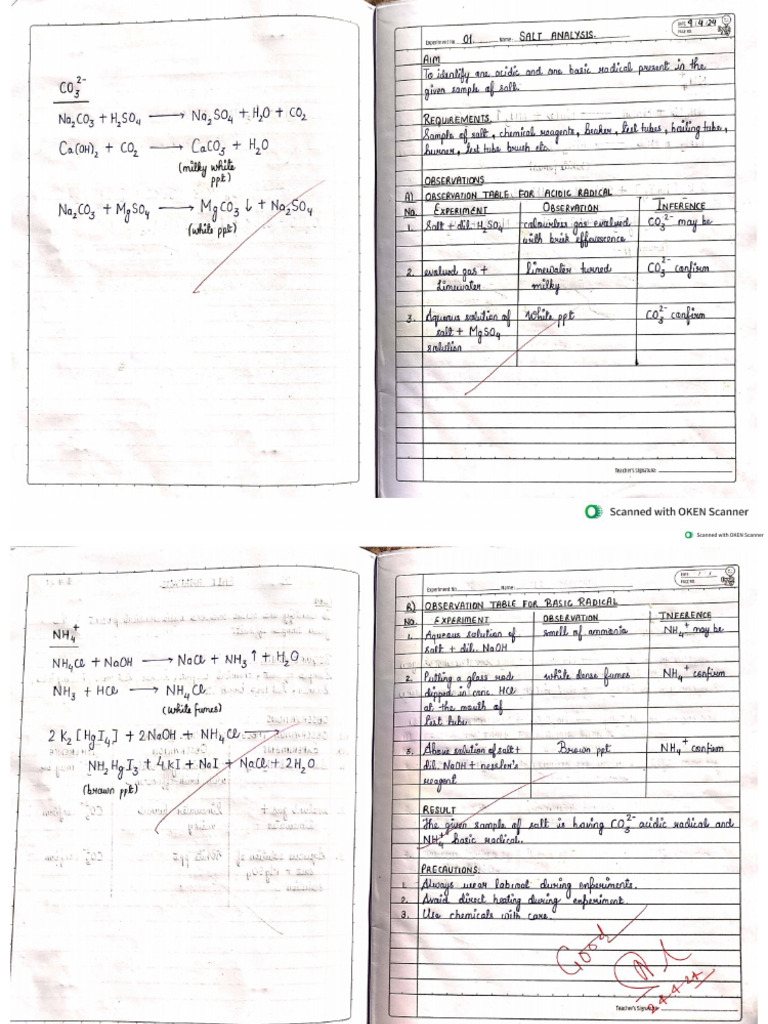 CO₃²⁻
Na₂CO₃ + H₂SO₄ ⟶ Na₂SO₄ + H₂O + CO₂
Ca(OH)₂ + CO₂ ⟶ CaCO₃ + H₂O
(milky white
ppt)
Na₂CO₃ + MgSO₄ ⟶ MgCO₃ ↓ + Na₂SO₄
(white ppt)
DATE: 9/4/24
PAGE NO.
Experiment No. 01. Name: SALT ANALYSIS.
AIM
To identify one acidic and one basic radical present in the
given sample of salt.
REQUIREMENTS.
Sample of salt, chemical reagents, beaker, test tubes, boiling tube,
burner, test tube brush etc.
OBSERVATIONS
A) OBSERVATION TABLE FOR ACIDIC RADICAL
No. EXPERIMENT OBSERVATION INFERENCE
1. Salt + dil. H₂SO₄ colourless gas evolued CO₃²⁻ may be
with brisk effervescence
2. evolued gas + limewater turned CO₃²⁻ confirm
Limewater milky
3. Aqueous solution of White ppt CO₃²⁻ confirm
salt + MgSO₄
solution
Teacher's Signature:
Scanned with OKEN Scanner
Scanned with OKEN Scanner
NH₄⁺
NH₄Cl + NaOH ⟶ NaCl + NH₃ ↑ + H₂O
NH₃ + HCl ⟶ NH₄Cl
(White fumes)
2 K₂[HgI₄] + 2NaOH + NH₄Cl ⟶
NH₂HgI₃ + 4KI + NaI + NaCl + 2H₂O
(brown ppt)
DATE: / /
PAGE NO.
Experiment No. Name:
B) OBSERVATION TABLE FOR BASIC RADICAL
No. EXPERIMENT OBSERVATION INFERENCE
1. Aqueous solution of smell of ammonia NH₄⁺ may be
salt + dil. NaOH
2. Putting a glass rod white dense fumes NH₄⁺ confirm
dipped in conc. HCl
at the mouth of
test tube.
3. Above solution of salt + Brown ppt NH₄⁺ confirm
dil. NaOH + nessler's
reagent
RESULT
The given sample of salt is having CO₃²⁻ acidic radical and
NH₄⁺ basic radical.
PRECAUTIONS.
1. Always wear labcoat during experiments.
2. Avoid direct heating during experiment.
3. Use chemicals with care.
Good
24.4.24
Teacher's Signature